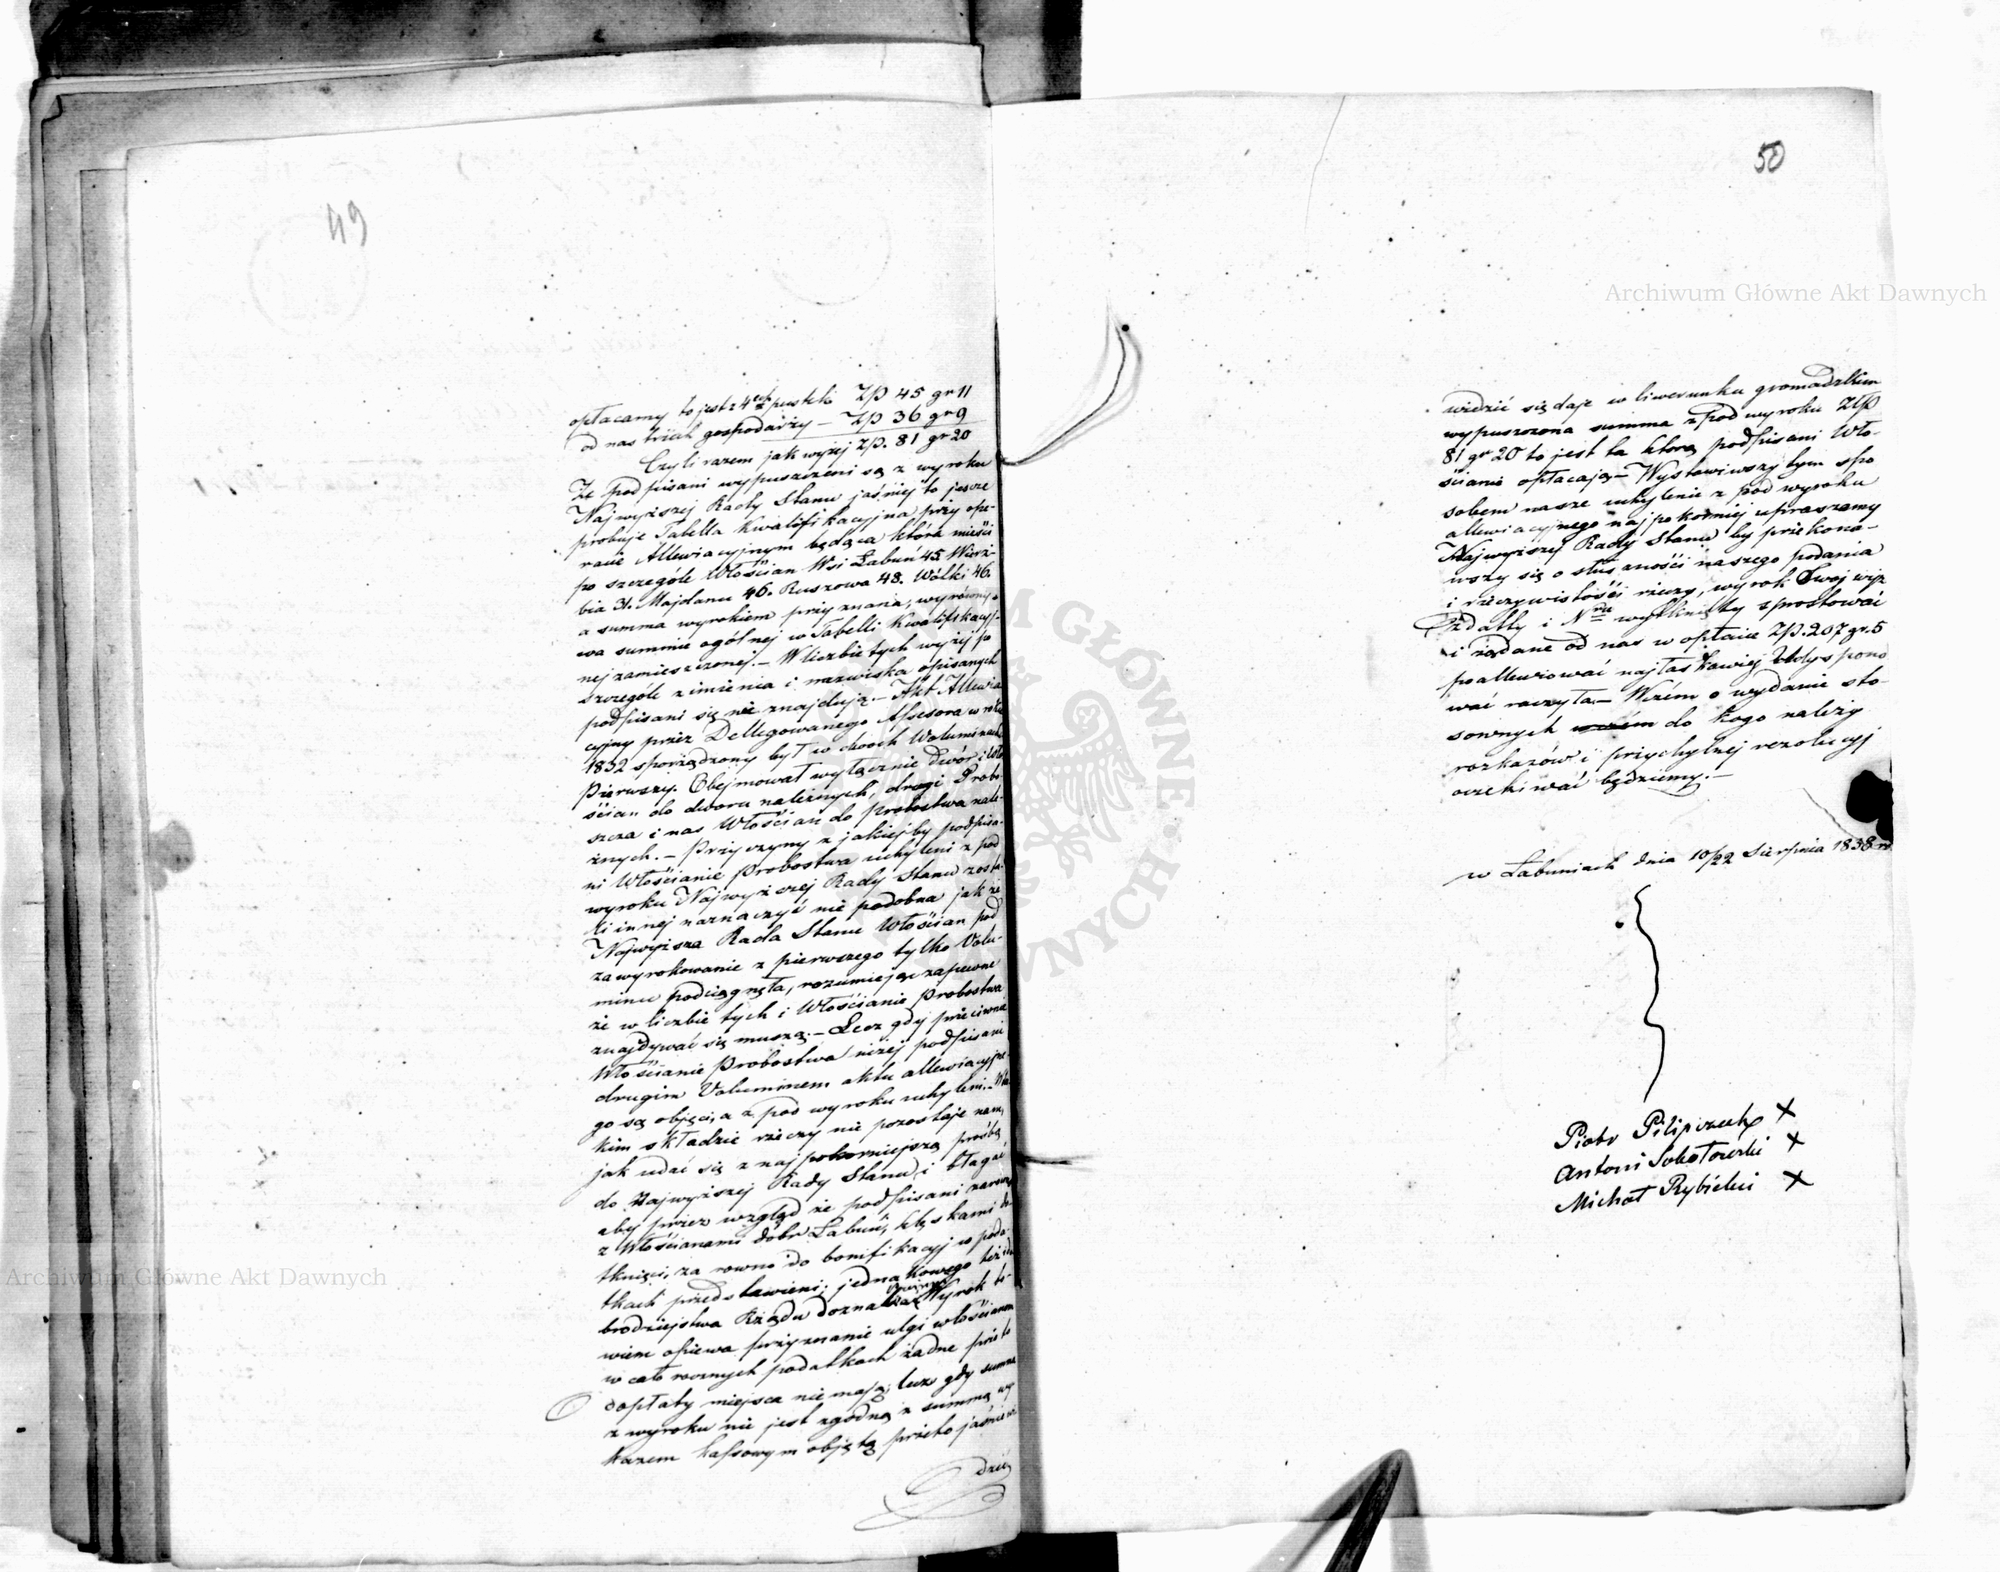 49
opłacamy to jest z 4ech pustek Złp 45 gr 11
od nas trzech gospodarzy — Złp 36 gr 9
Czyli razem jak wyżej Złp. 81 gr 20
Że podpisani wypuszczeni są z wyroku
Najwyższej Rady Stanu jaśniej to jeszcze
probuje Tabella kwalifikacyjna przy ope-
racie Allewiacyjnym będąca która mieści
po szczególe Włościan Wsi Łabuń 45 Wierz-
bia 31. Majdanu 46. Ruszowa 48. Wólki 46.
a summa wyrokiem przyznana, wyrówny-
wa summie ogólnej w Tabelli kwalifikacyj-
nej zamieszczonej. — W liczbie tych wyżej po
szczególe z imienia i nazwiska opisanych
podpisani się nie znajdują. — Akt Allewia
cyjny przez Dellegowanego Assesora w roku
1832 sporządzony był w dwóch Woluminach
Pierwszy. Obejmował wyłącznie dwór i Wło
ścian do dworu należnych, drugi Probo-
szcza i nas Włościan do probostwa nale-
żnych. — Przyczyny z jakiejby podpisa-
ni Włościanie Probostwa uchyleni z pod
wyroku Najwyższej Rady Stanu zosta-
li innej naznaczyć nie podobna jak że
Najwyższa Rada Stanu Włościan pod
zawyrokowanie z pierwszego tylko Wolu-
minu podciągnęła, rozumiejąc zapewne
że w liczbie tych i Włościanie Probostwa
znajdywać się muszą. — Lecz gdy przeciwnie
Włościanie Probostwa niżej podpisani
drugim Voluminem aktu allewiacyjne-
go są objęci, a z pod wyroku uchyleni. — W ta
kim składzie rzeczy nie pozostaje nam,
jak udać się z najpokorniejszą prośbą
do Najwyższej Rady Stanu i błagać
aby przez wzgląd że podpisani zarówno
z Włościanami dóbr Łabuń, klęskami do-
tknięci, za rowno do bonifikacyj w poda-
tkach przedstawieni; jednakowego też i do
brodziejstwa Rządu doznali Wyrok bo-
wiem opiewa przyznanie ulgi włościanom
w cało rocznych podatkach żadne przeto
dopłaty miejsca nie mają; lecz gdy summa
z wyroku nie jest zgodną z summą wy
kazem kassowym objętą przeto jaśnie wi
dzieć
50
widzieć się daje w liwerunku gromadzkim
wypuszczona summa z pod wyroku Złp
81 gr 20 to jest ta którą podpisani Wło-
ścianie opłacają — Wystawiwszy tym spo
sobem nasze uchylenie z pod wyroku
allewiacyjnego najpokorniej upraszamy
Najwyższej Rady Stanu by przekona-
wszy się o słuszności naszego podania
i rzeczywistości rzeczy, wyrok Swoj wyż
z daty i Nru wytknięty sprostować
i żądane od nas w opłacie Złp. 207 gr. 5
poallewiować najłaskawiej zadyspono
wać raczyła — Wzém o wydanie sto-
sownych do kogo należy
rozkazów i przychylnej rezolucyj
oczekiwać będziemy. —
w Łabuniach dnia 10/22 Sierpnia 1838 r.
Piotr Pilipczuk X
Antoni Sobotowski X
Michał Rybicki X
Archiwum Główne Akt Dawnych
Archiwum Główne Akt Dawnych